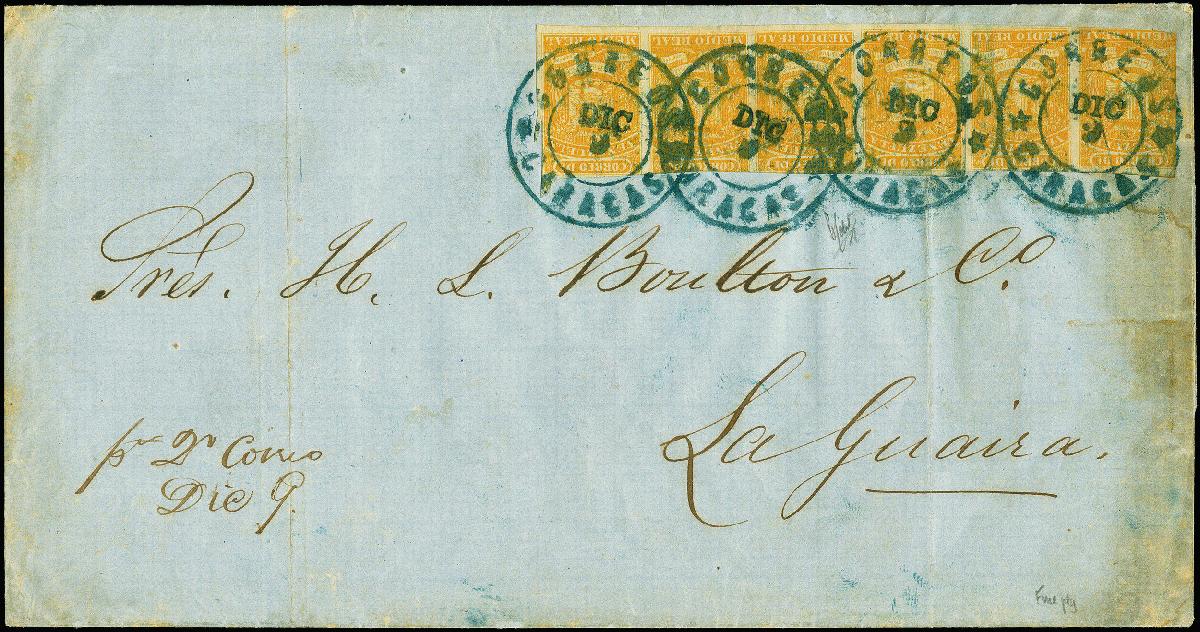 MEDIO REAL MEDIO REAL MEDIO REAL MEDIO REAL MEDIO REAL MEDIO REAL
CORREOS DIC 9 CARACAS
CORREOS DIC 9 CARACAS
CORREOS DIC 9 CARACAS
CORREOS DIC 9 CARACAS
CORREO DE VENEZUELA
Srēs. H. L. Boulton & Cª.
La Guaira.
pr 2º Correo
Dic 9.